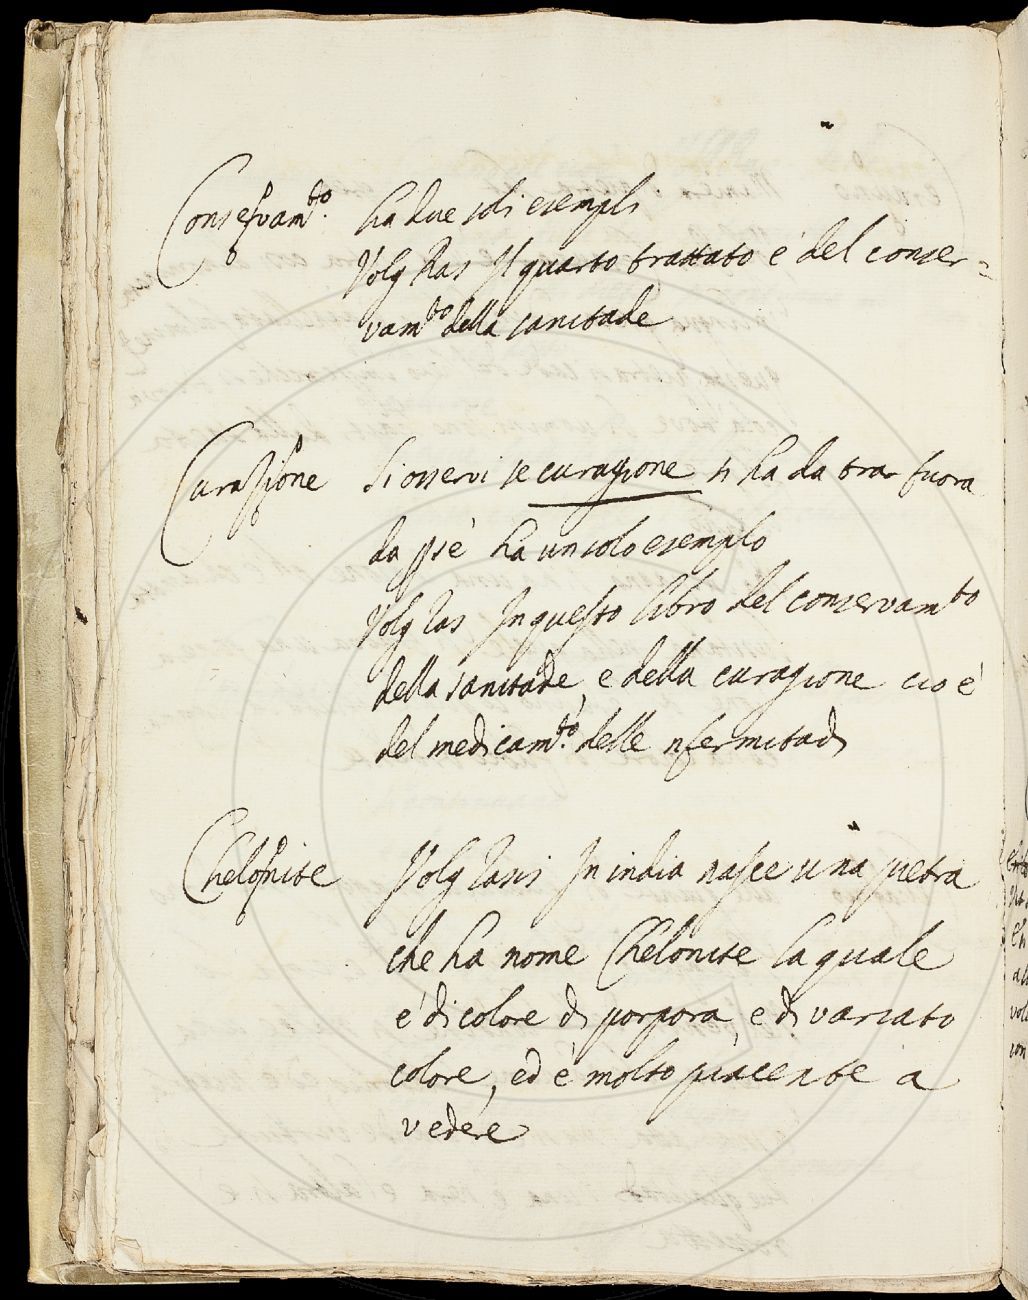 Conservam.to ha due soli esempli
Volg Ras Il quarto trattato è del conser-
vam.to della sanitade
Curazione Si osservi se curagione si ha da trar fuora
da p se è ha un solo esemplo
Volg Ras In questo libro del conservam.to
della sanitade, e della curagione cio è
del medicam.to delle nfermitadi
Chelonite Volg Rasis In india nasce una pietra
che ha nome Chelonite la quale
è di colore di porpora, e di variato
colore, ed è molto piacente a
vedere